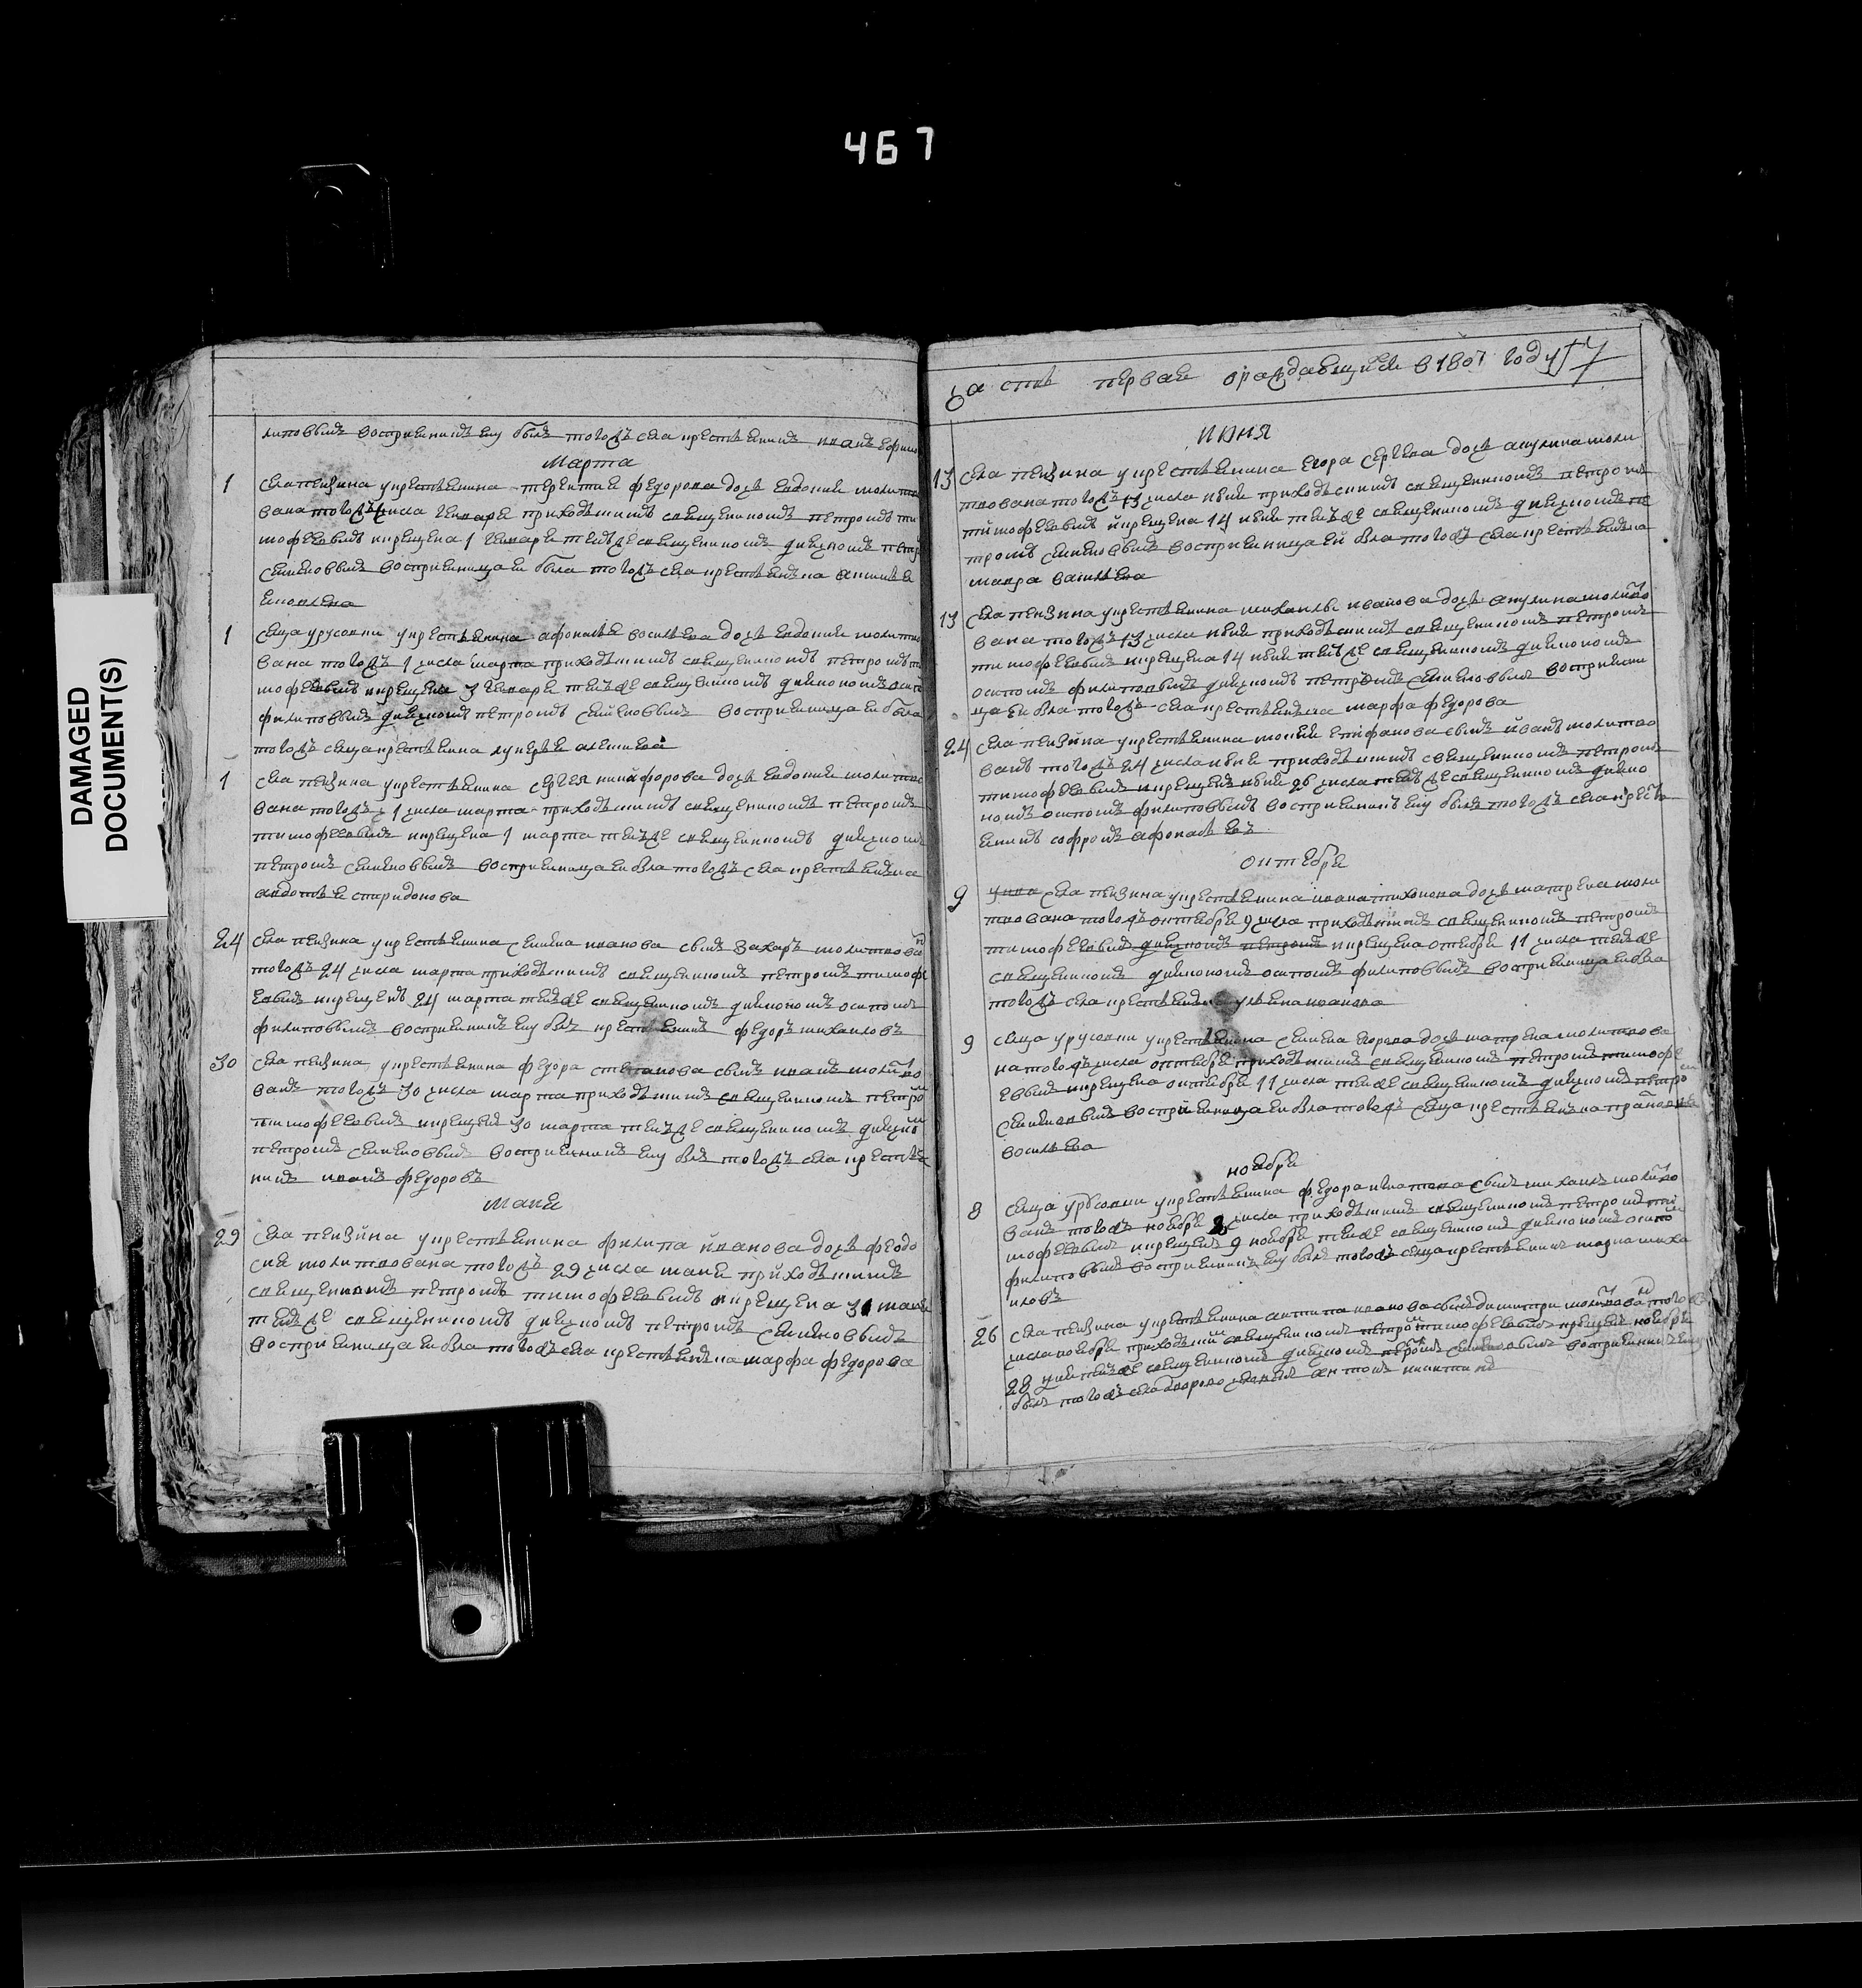 467
DAMAGED
DOCUMENT(S)
липовымъ восприемникъ ему былъ тогожъ села крестьянинъ иванъ ефимо
марта
1 села пензина у крестьянина терентия федорова дочь евдокия молитво
вана тогожъ 1 числа генваря приходскимъ священникомъ петромъ ти
мофеевымъ и крещена 1 генваря темъже священникомъ дьячкомъ петр
семеновымъ восприемница ей была тогожъ села крестьянка
1 сельца урусовки у крестьянина афонасья васильева дочь евдокия молитво
вана тогожъ 1 числа марта приходскимъ священникомъ петромъ ти
мофеевымъ и крещена 3 генваря темъже священникомъ дьякономъ осип
филиповымъ дьячкомъ петромъ семеновымъ восприемница ей была
тогожъ сельца крестьянина лукерья алексеева
1 села пензина у крестьянина сергея никифорова дочь евдокия молитво
вана тогожъ 1 числа марта приходскимъ священникомъ петромъ
тимофеевымъ и крещена 1 марта темъже священникомъ дьячкомъ
петромъ семеновымъ восприемница ей была тогожъ села крестьянка
авдотья спиридонова
24 села пензина у крестьянина семена иванова сынъ захаръ молитвованъ
тогожъ 24 числа марта приходскимъ священникомъ петромъ тимофе
евымъ и крещенъ 24 марта темъже священникомъ дьякономъ осипомъ
филиповымъ восприемникъ ему былъ крестьянинъ федоръ михаиловъ
30 села пензина у крестьянина федора степанова сынъ иванъ молитво
ванъ тогожъ 30 числа марта приходскимъ священникомъ петромъ
тимофеевымъ и крещенъ 30 марта темъже священникомъ дьячкомъ
петромъ семеновымъ восприемникъ ему былъ тогожъ села крестья
нинъ иванъ федоровъ
маия
29 села пензина у крестьянина филипа иванова дочь феодо
сия молитвована тогожъ 29 числа маия приходскимъ
священникомъ петромъ тимофеевымъ и крещена 31 маия
темъже священникомъ дьячкомъ петромъ семеновымъ
восприемница ей была тогожъ села крестьянка марфа федорова
часть первая о раждавшихся в 1807 году 57
июня
13 села пензина у крестьянина егора сергеева дочь акулина моли
твована тогожъ 13 числа июня приходскимъ священникомъ петромъ
тимофеевымъ и крещена 14 июня темъже священникомъ дьячкомъ пе
тромъ семеновымъ восприемница ей была тогожъ села крестьянка
мавра васильева
13 села пензина у крестьянина михаилы иванова дочь акулина молитво
вана тогожъ 13 числа июня приходскимъ священникомъ петромъ
тимофеевымъ и крещена 14 июня темъже священникомъ дьякономъ
осипомъ филиповымъ дьячкомъ петромъ семеновымъ восприемни
ца ей была тогожъ села крестьянка марфа федорова
24 села пензина у крестьянина мокия епифанова сынъ иванъ молитво
ванъ тогожъ 24 числа июня приходскимъ священникомъ петромъ
тимофеевымъ и крещенъ июня 26 числа темъже священникомъ дьяко
номъ осипомъ филиповымъ восприемникъ ему былъ тогожъ села кресть
янинъ софронъ афонасьевъ
октября
9 села пензина у крестьянина ивана тихонова дочь матрена моли
твована тогожъ октября 9 числа приходскимъ священникомъ петромъ
тимофеевымъ дьячкомъ петромъ и крещена октября 11 числа темъже
священникомъ дьякономъ осипомъ филиповымъ восприемница ей была
тогожъ села крестьянка ульяна иванова
9 сельца урусовки у крестьянина семена егорова дочь матрена молитвова
на тогожъ числа октября приходскимъ священникомъ петромъ тимофе
евымъ и крещена октября 11 числа темъже священникомъ дьячкомъ петромъ
семеновымъ восприемница ей была тогожъ сельца крестьянка
васильева
ноября
8 сельца урусовки у крестьянина федора сынъ михаилъ молитво
ванъ тогожъ ноября 8 числа приходскимъ священникомъ петромъ ти
мофеевымъ и крещенъ 9 ноября темъже священникомъ дьякономъ осипомъ
филиповымъ восприемникъ ему былъ тогожъ сельца крестьянинъ миха
иловъ
26 села пензина у крестьянина антипа иванова сынъ димитри молитвованъ тогожъ
числа ноября приходскимъ священникомъ петромъ тимофеевымъ и крещенъ ноября
28 дня темъже священникомъ дьячкомъ петромъ семеновымъ восприемникъ ему
былъ тогожъ села антонъ никитинъ